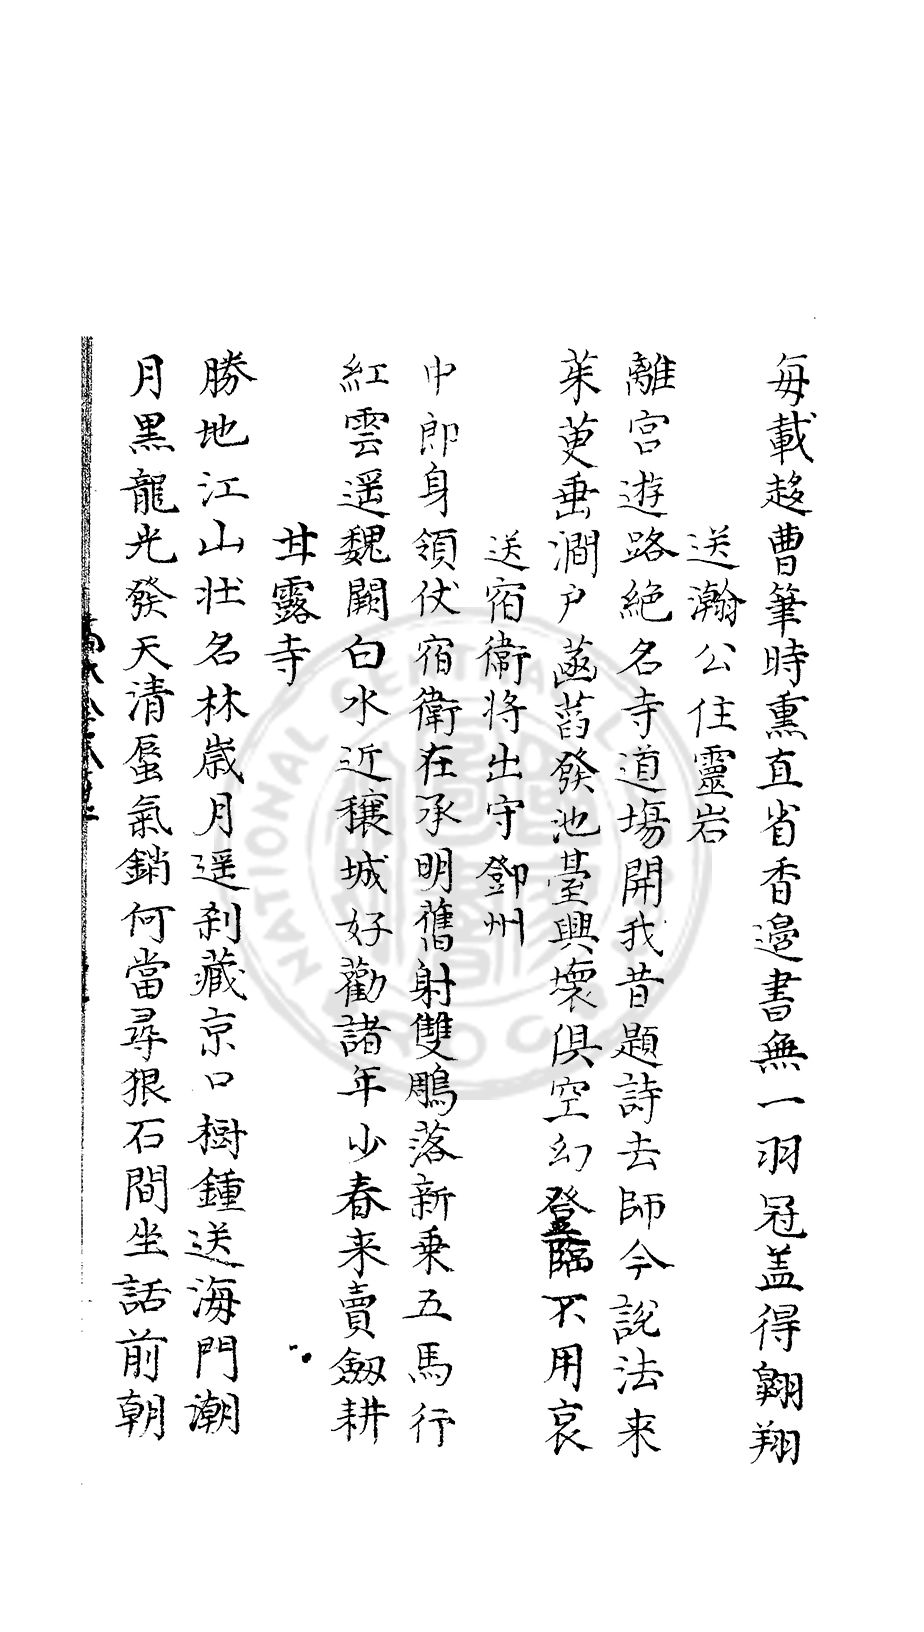 每載趍曹筆時熏直省香邉書無一羽冠盖得翺翔
送瀚公住靈岩
離宮遊路絶名寺道塲開我昔題詩去師今說法来
茱萸垂澗户菡萏發池臺興壞俱空幻登臨不用哀
送宿衞將出守鄧州
中郎身領仗宿衛在承明舊射雙鵰落新乗五馬行
紅雲遥魏闕白水近穰城好勸諸年少春来賣劔耕
甘露寺
勝地江山壮名林歳月遥刹藏京口樹鍾送海門潮
月黒龍光發天清蜃氣銷何當尋狠石間坐話前朝
NATIONAL CENTRAL